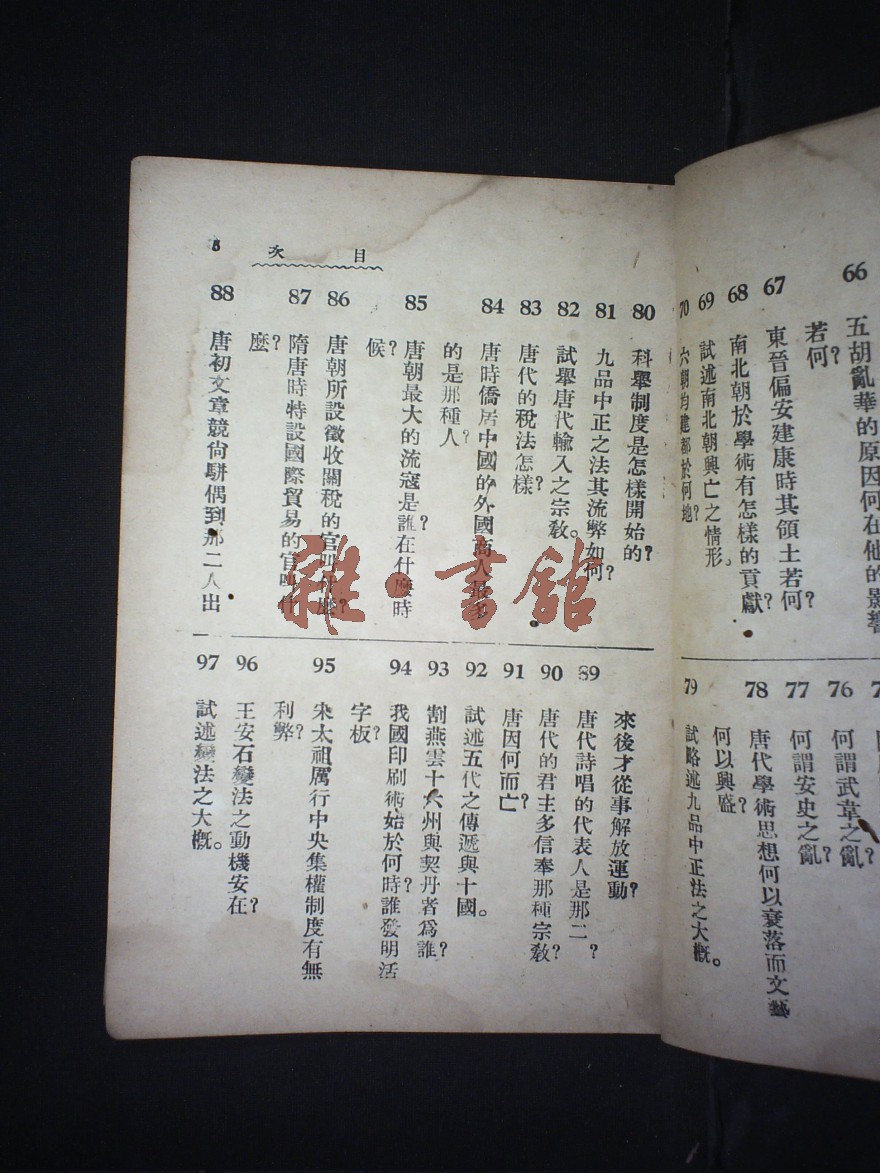 66 五胡亂華的原因何在他的影響
若何？
67 東晉偏安建康時其領土若何？
68 南北朝於學術有怎樣的貢獻？
69 試述南北朝興亡之情形。
70 六朝均建都於何地？
76 何謂武韋之亂？
77 何謂安史之亂？
78 唐代學術思想何以衰落而文藝
何以興盛？
79 試略述九品中正法之大槪。
目次 5
80 科舉制度是怎樣開始的？
81 九品中正之法其流弊如何？
82 試舉唐代輸入之宗敎。
83 唐代的稅法怎樣？
84 唐時僑居中國的外國商人最多
的是那種人？
85 唐朝最大的流寇是誰在什麼時
候？
86 唐朝所設徵收關稅的官叫什麼？
87 隋唐時特設國際貿易的官叫什
麼？
88 唐初文章競尙駢偶到那二人出
來後才從事解放運動？
89 唐代詩唱的代表人是那二？
90 唐代的君主多信奉那種宗敎？
91 唐因何而亡？
92 試述五代之傳遞與十國。
93 割燕雲十六州與契丹者爲誰？
94 我國印刷術始於何時？誰發明活
字板？
95 宋太祖厲行中央集權制度有無
利弊？
96 王安石變法之動機安在？
97 試述變法之大槪。
雜·書館